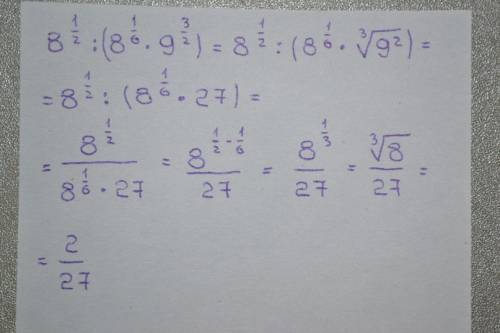 8^{1/2} : (8^{1/6} · 9^{3/2}) = 8^{1/2} : (8^{1/6} · ∛(9²)) =
= 8^{1/2} : (8^{1/6} · 27) =
= \frac{8^{1/2}}{8^{1/6} · 27} = \frac{8^{1/2 - 1/6}}{27} = \frac{8^{1/3}}{27} = \frac{∛8}{27} =
= \frac{2}{27}